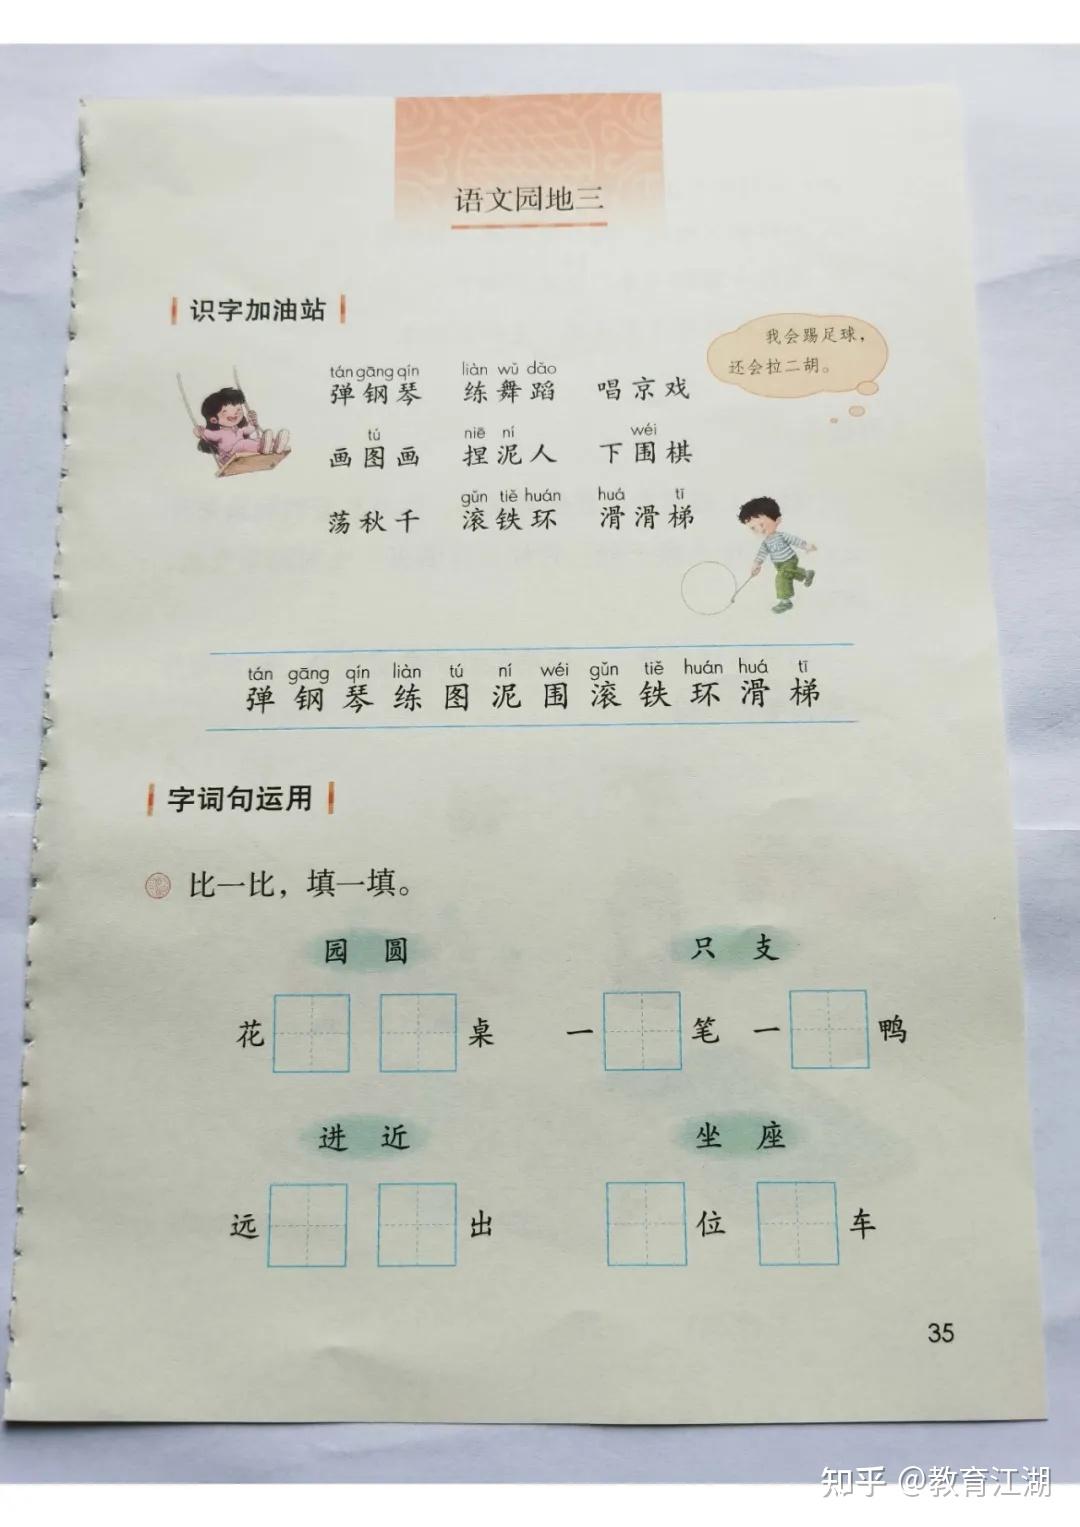 语文园地三
识字加油站
我会踢足球，
还会拉二胡。
tán gāng qín liàn wǔ dǎo
弹钢琴 练舞蹈 唱京戏
tú niē ní wéi
画图画 捏泥人 下围棋
gǔn tiě huán huá tī
荡秋千 滚铁环 滑滑梯
tán gāng qín liàn tú ní wéi gǔn tiě huán huá tī
弹 钢 琴 练 图 泥 围 滚 铁 环 滑 梯
字词句运用
比一比，填一填。
园 圆 只 支
花 桌 一 笔 一 鸭
进 近 坐 座
远 出 位 车
35
知乎 @教育江湖